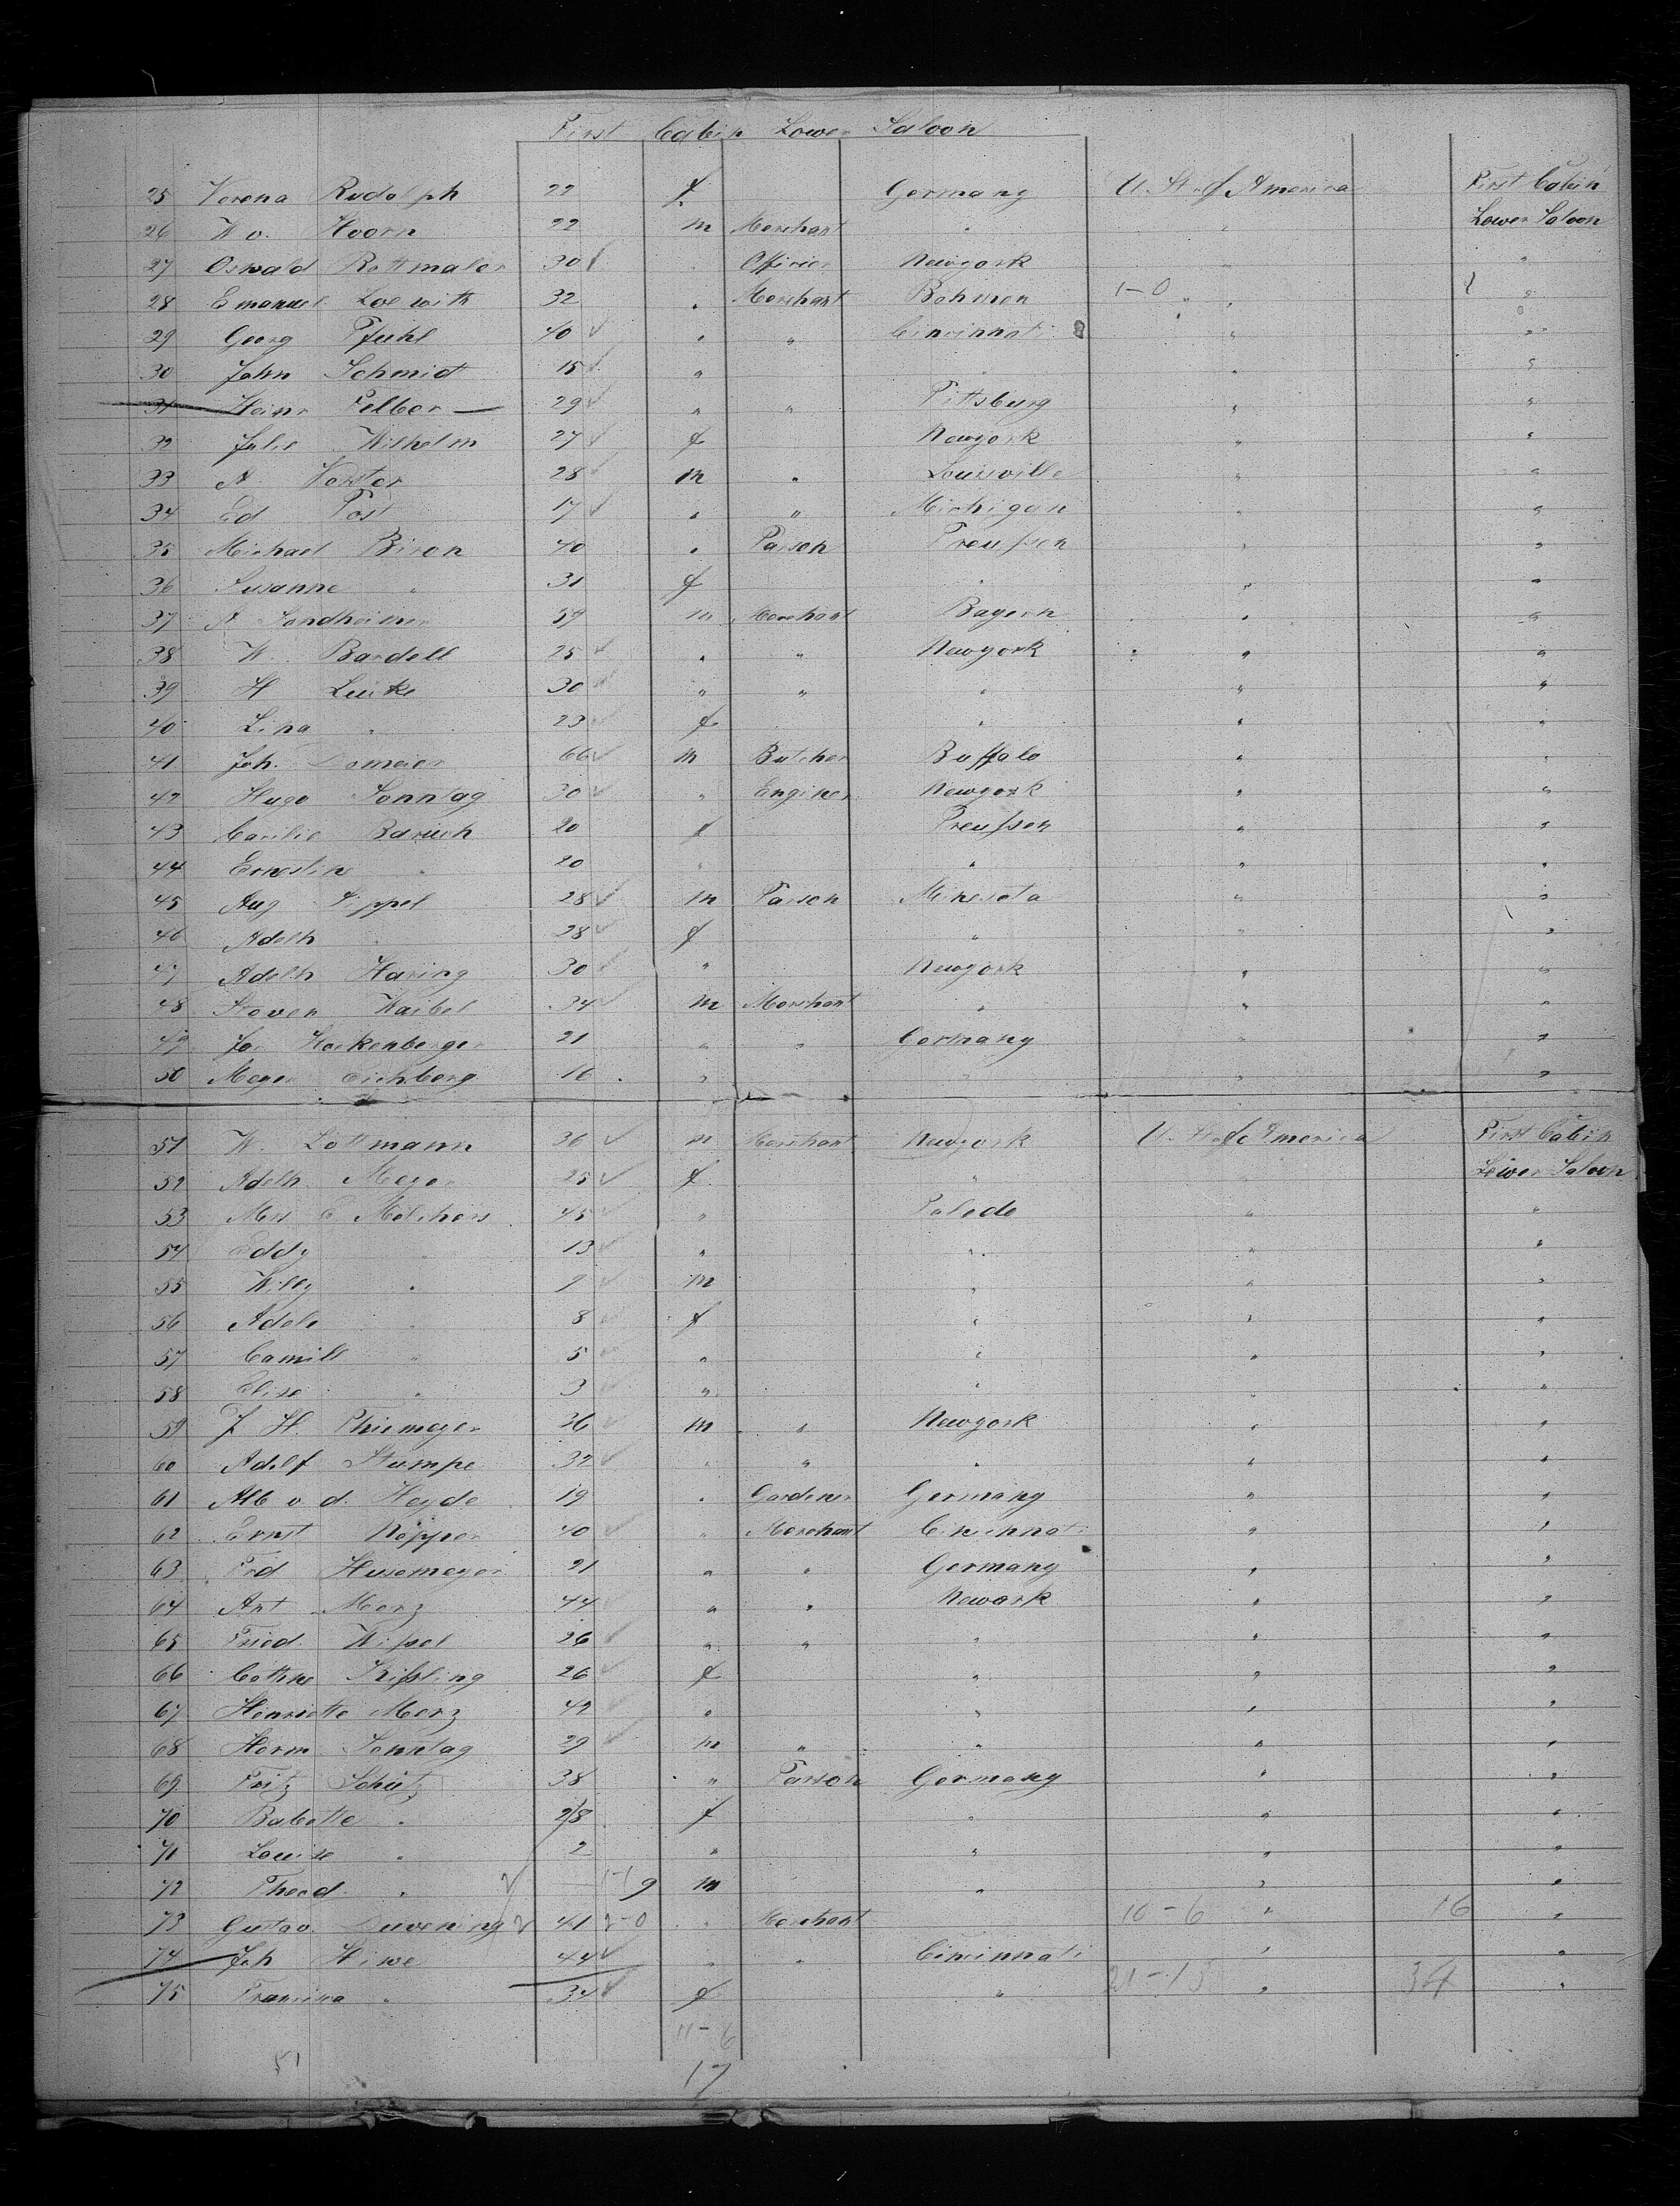 First Cabin Lower Saloon
25 Verena Rudolph 22 f Germany U. St. of America First Cabin
26 W v. Hoorn 22 m Merchant " " Lower Saloon
27 Oswald Rottmaler 30 " Officier Newyork " "
28 Emanuel Loewith 32 " Merchant Böhmen 1-0 " "
29 Georg Pfuhl 40 " " Cincinnati " "
30 John Schmidt 15 " " " "
31 Heinr Felber 29 " " Pittsburg " "
32 Julie Wilhelm 27 f Newyork " "
33 A. Vorster 28 m " Louisville " "
34 Ed Post 17 " " Michigan " "
35 Michael Biron 40 " Parson Preussen " "
36 Susanne " 31 f " " "
37 A Sondheimer 59 m Merchant Bayern " "
38 W. Bardell 25 " " Newyork " "
39 H Lücke 30 " " " " "
40 Lina " 23 f " " "
41 Joh. Domeier 66 m Butcher Buffalo " "
42 Hugo Sonntag 30 " Enginer Newyork " "
43 Cacilie Baruch 20 f Preussen " "
44 Ernestine " 20 " " " "
45 Aug Sippel 28 m Parson Minesota " "
46 Adelh " 28 f " " "
47 Adelh Haring 30 " Newyork " "
48 Steven Waibel 34 m Merchant " " "
49 Jos Hackenberger 21 " " Germany " "
50 Meyer Eichberg 16 " " " "
51 W. Lottmann 36 m Merchant Newyork U. St. of America First Cabin
52 Adelh. Meyer 25 f " Lower Saloon
53 Mrs E Melchers 45 " Toledo " "
54 Eddy " 13 " " " "
55 Willy " 9 m " " "
56 Adele " 8 f " " "
57 Camill " 5 " " " "
58 Elise " 3 " " " "
59 J H. Thiemeyer 36 m " Newyork " "
60 Adolf Stumpe 32 " " " " "
61 Alb v d. Heyde 19 " Gardener Germany " "
62 Ernst Köpper 40 " Merchant Cincinnati " "
63 Frd Husemeyer 21 " " Germany " "
64 Ant Merz 44 " " Newark " "
65 Fried. Wissel 26 " " " " "
66 Cathne Kissling 26 f " " "
67 Henriette Merz 42 " " " "
68 Herm Sonntag 29 m " " " "
69 Fritz Schütz 38 " Parson Germany " "
70 Babette " 28 f " " "
71 Louise " 2 " " " "
72 Theod. " 1-1 9 m " " "
73 Gustav Duvening 41 2-0 " Merchant 10-6 " 16 "
74 Joh Hiwe 44 " " Cincinnati " "
75 Francisca " 34 f " 21-13 " 34 "
11-6
51 17